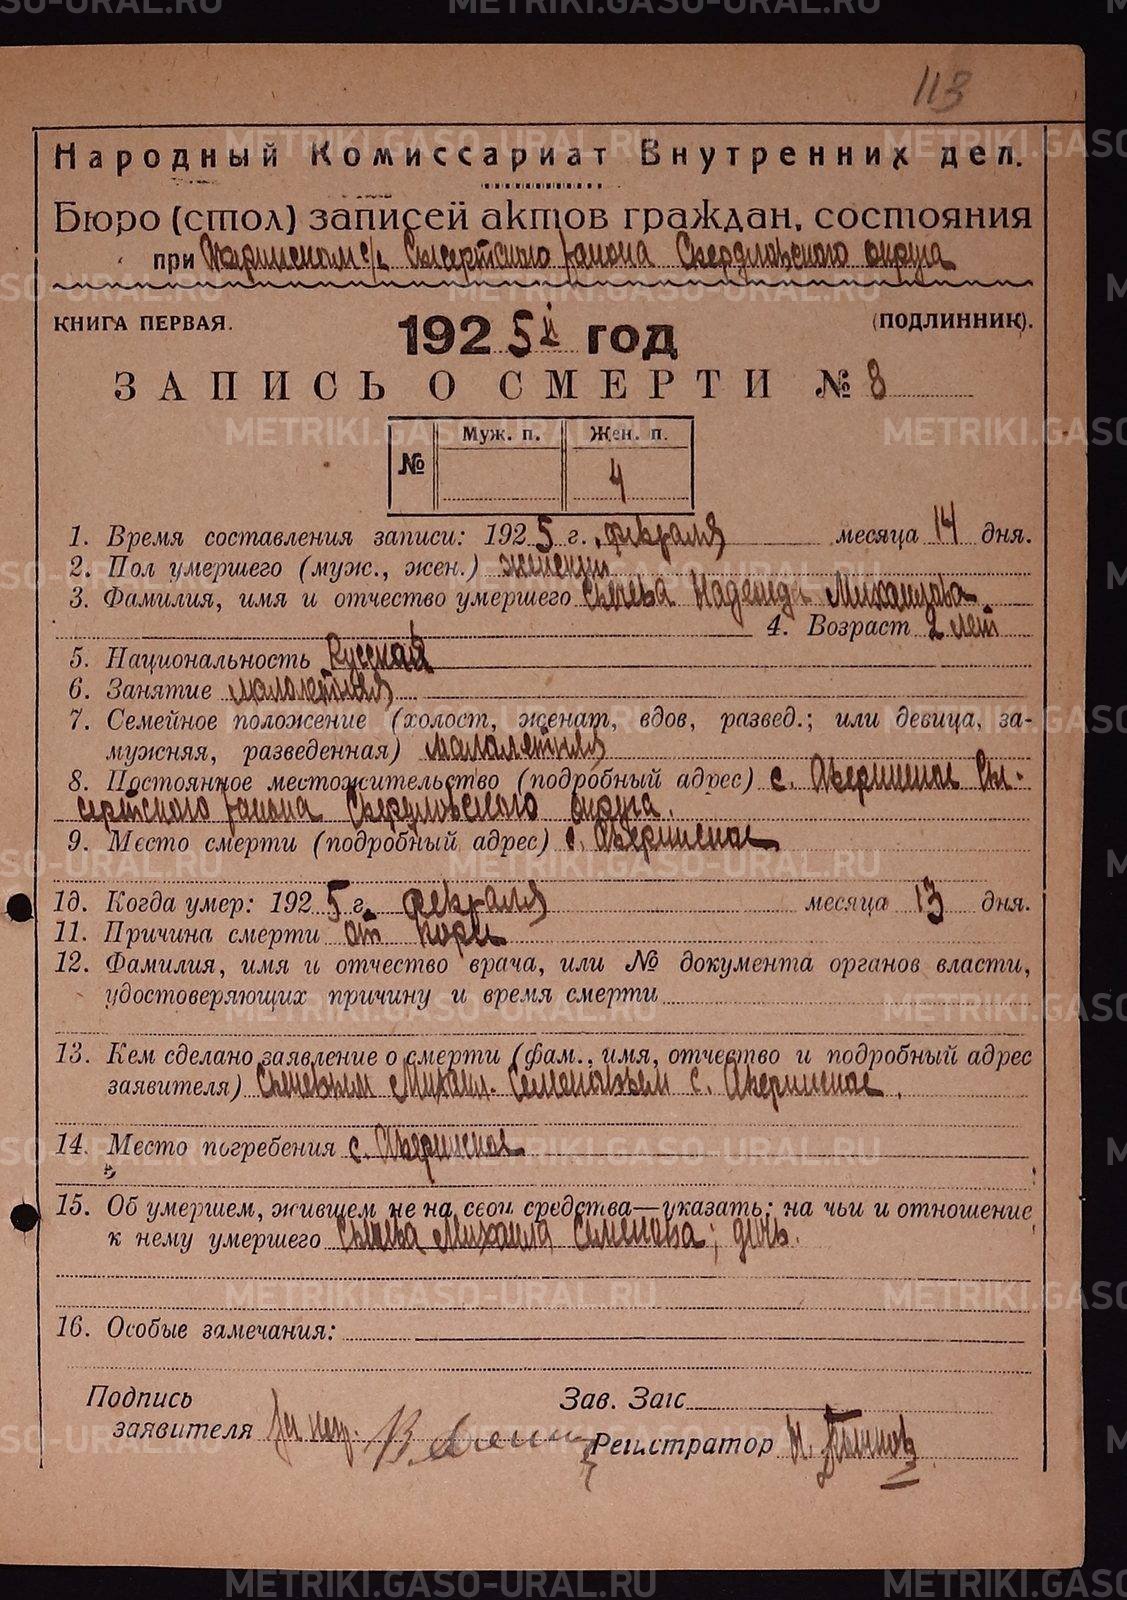 113
Народный Комиссариат Внутренних дел.
Бюро (стол) записей актов граждан. состояния
при Аверинском с/с Сысертского района Свердловского округа
КНИГА ПЕРВАЯ. 1925 й год (ПОДЛИННИК).
ЗАПИСЬ О СМЕРТИ № 8
Муж. п. Жен. п.
№ 4
1. Время составления записи: 1925 г. февраля месяца 14 дня.
2. Пол умершего (муж., жен.) женский
3. Фамилия, имя и отчество умершего Сычева Надежда Михайлова
4. Возраст 2 лет
5. Национальность Русская
6. Занятие малолетняя
7. Семейное положение (холост, женат, вдов, развед.; или девица, за-
мужняя, разведенная) малолетняя
8. Постоянное местожительство (подробный адрес) с. Аверинское Сы-
сертского района Свердловского округа.
9. Место смерти (подробный адрес) с. Аверинское
10. Когда умер: 1925 г. февраля месяца 13 дня.
11. Причина смерти от кори
12. Фамилия, имя и отчество врача, или № документа органов власти,
удостоверяющих причину и время смерти
13. Кем сделано заявление о смерти (фам., имя, отчество и подробный адрес
заявителя) Сычевым Михаил. Семеновым с. Аверинское.
14. Место погребения с. Аверинское
15. Об умершем, жившем не на свои средства—указать: на чьи и отношение
к нему умершего Сычева Михаила Семенова; дочь.
16. Особые замечания:
Подпись Зав. Загс
заявителя За негр. Регистратор
METRIKI.GASO-URAL.RU